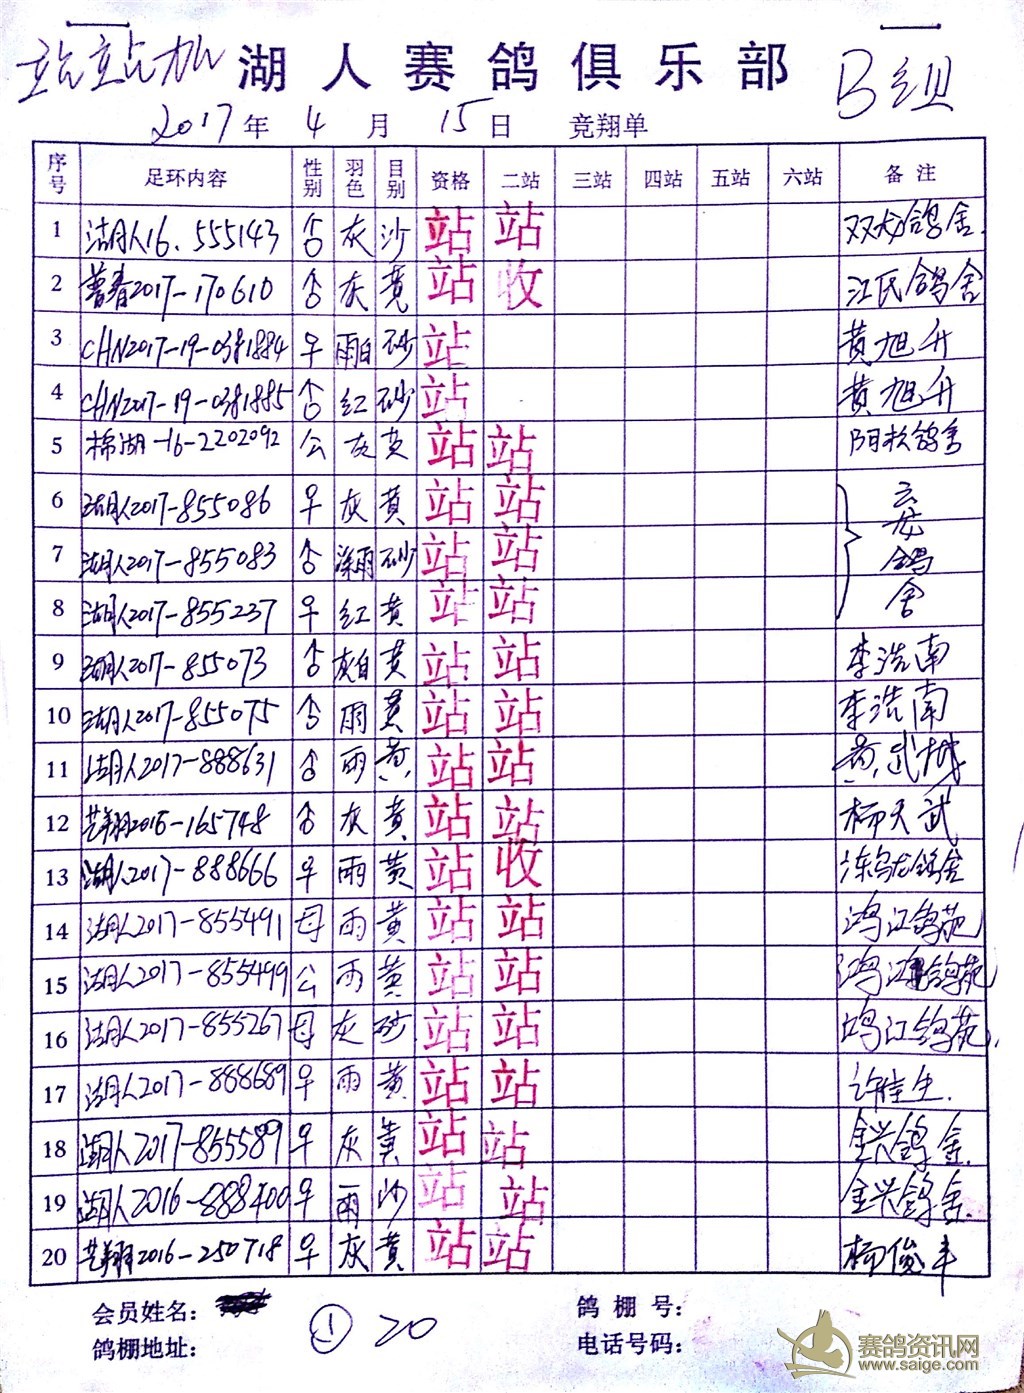 站站加 湖人赛鸽俱乐部 B组
2017年 4月 15日 竞翔单
序号 足环内容 性别 羽色 目别 资格 二站 三站 四站 五站 六站 备注
1 湖人16.555143 灰 沙 站 站 双龙鸽舍.
2 普春2017-170610 灰 黄 站 收 江氏鸽舍
3 CHN2017-19-0381884 雨白 砂 站 黄旭升
4 CHN2017-19-0381885 红 砂 站 黄旭升
5 棉湖-16-2202092 公 灰 黄 站 站 阿松鸽舍
6 湖人2017-855086 灰 黄 站 站
7 湖人2017-855083 深雨 砂 站 站 鸽
8 湖人2017-855237 红 黄 站 站 舍
9 湖人2017-855073 灰白 黄 站 站 李浩南
10 湖人2017-855075 雨 黄 站 站 李浩南
11 湖人2017-888631 雨 黄 站 站 黄武城
12 艺翔2016-165748 灰 黄 站 站 杨天武
13 湖人2017-888666 雨 黄 站 收 乌龙鸽舍
14 湖人2017-855491 母 雨 黄 站 站 鸿江鸽苑
15 湖人2017-855499 公 雨 黄 站 站 鸿江鸽苑
16 湖人2017-855267 母 灰 砂 站 站 鸿江鸽苑.
17 湖人2017-888689 雨 黄 站 站 许佳生.
18 湖人2017-855589 灰 黄 站 站 金兴鸽舍.
19 湖人2016-888400 雨 沙 站 站 金兴鸽舍.
20 艺翔2016-250718 灰 黄 站 站 杨俊丰
会员姓名： 鸽棚号：
鸽棚地址： ① 20 电话号码：
赛鸽资讯网
www.saige.com